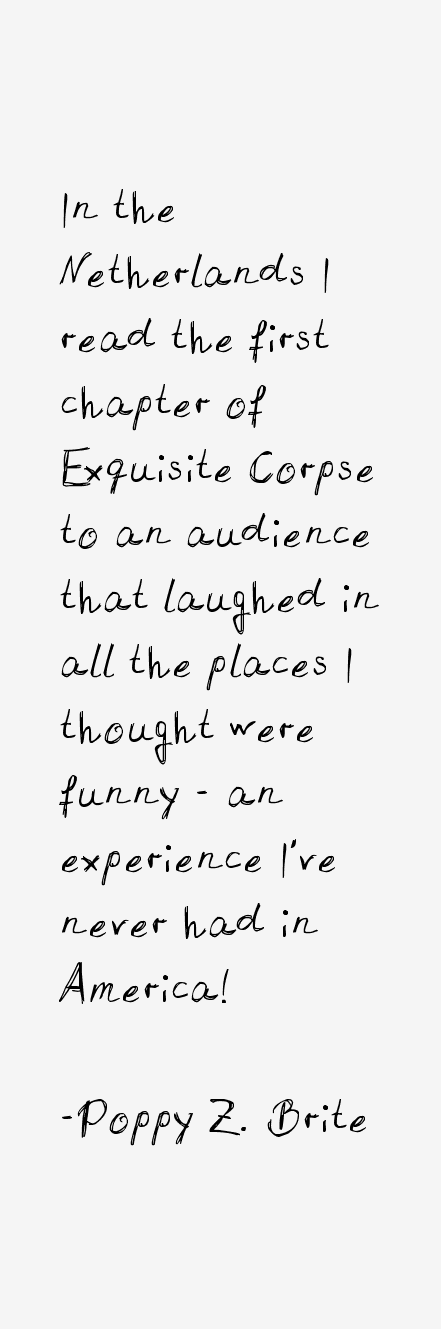 In the
Netherlands I
read the first
chapter of
Exquisite Corpse
to an audience
that laughed in
all the places I
thought were
funny - an
experience I've
never had in
America!
-Poppy Z. Brite